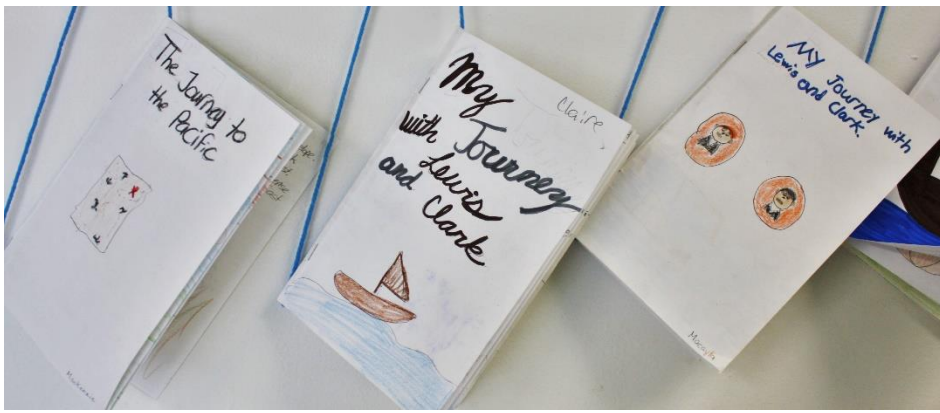 The Journey to
the Pacific
Claire
My
Journey
with Lewis
and Clark
My Journey with
Lewis and Clark.